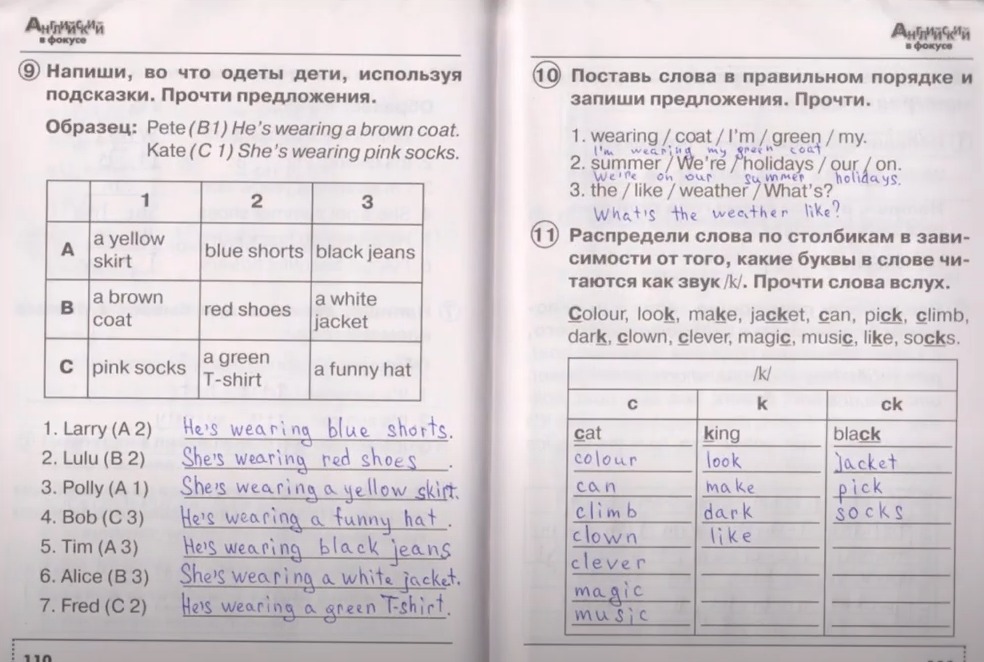 Английский
в фокусе
9 Напиши, во что одеты дети, используя
подсказки. Прочти предложения.
Образец: Pete (B1) He's wearing a brown coat.
Kate (C 1) She's wearing pink socks.
1 2 3
A a yellow skirt blue shorts black jeans
B a brown coat red shoes a white jacket
C pink socks a green T-shirt a funny hat
1. Larry (A 2) He's wearing blue shorts.
2. Lulu (B 2) She's wearing red shoes.
3. Polly (A 1) She's wearing a yellow skirt.
4. Bob (C 3) He's wearing a funny hat.
5. Tim (A 3) He's wearing black jeans
6. Alice (B 3) She's wearing a white jacket.
7. Fred (C 2) He's wearing a green T-shirt.
110
Английский
в фокусе
10 Поставь слова в правильном порядке и
запиши предложения. Прочти.
1. wearing / coat / I'm / green / my.
I'm wearing my green coat
2. summer / We're / holidays / our / on.
We're on our summer holidays.
3. the / like / weather / What's?
What's the weather like?
11 Распредели слова по столбикам в зави-
симости от того, какие буквы в слове чи-
таются как звук /k/. Прочти слова вслух.
Colour, look, make, jacket, can, pick, climb,
dark, clown, clever, magic, music, like, socks.
/k/
c k ck
cat king black
colour look jacket
can make pick
climb dark socks
clown like
clever
magic
music